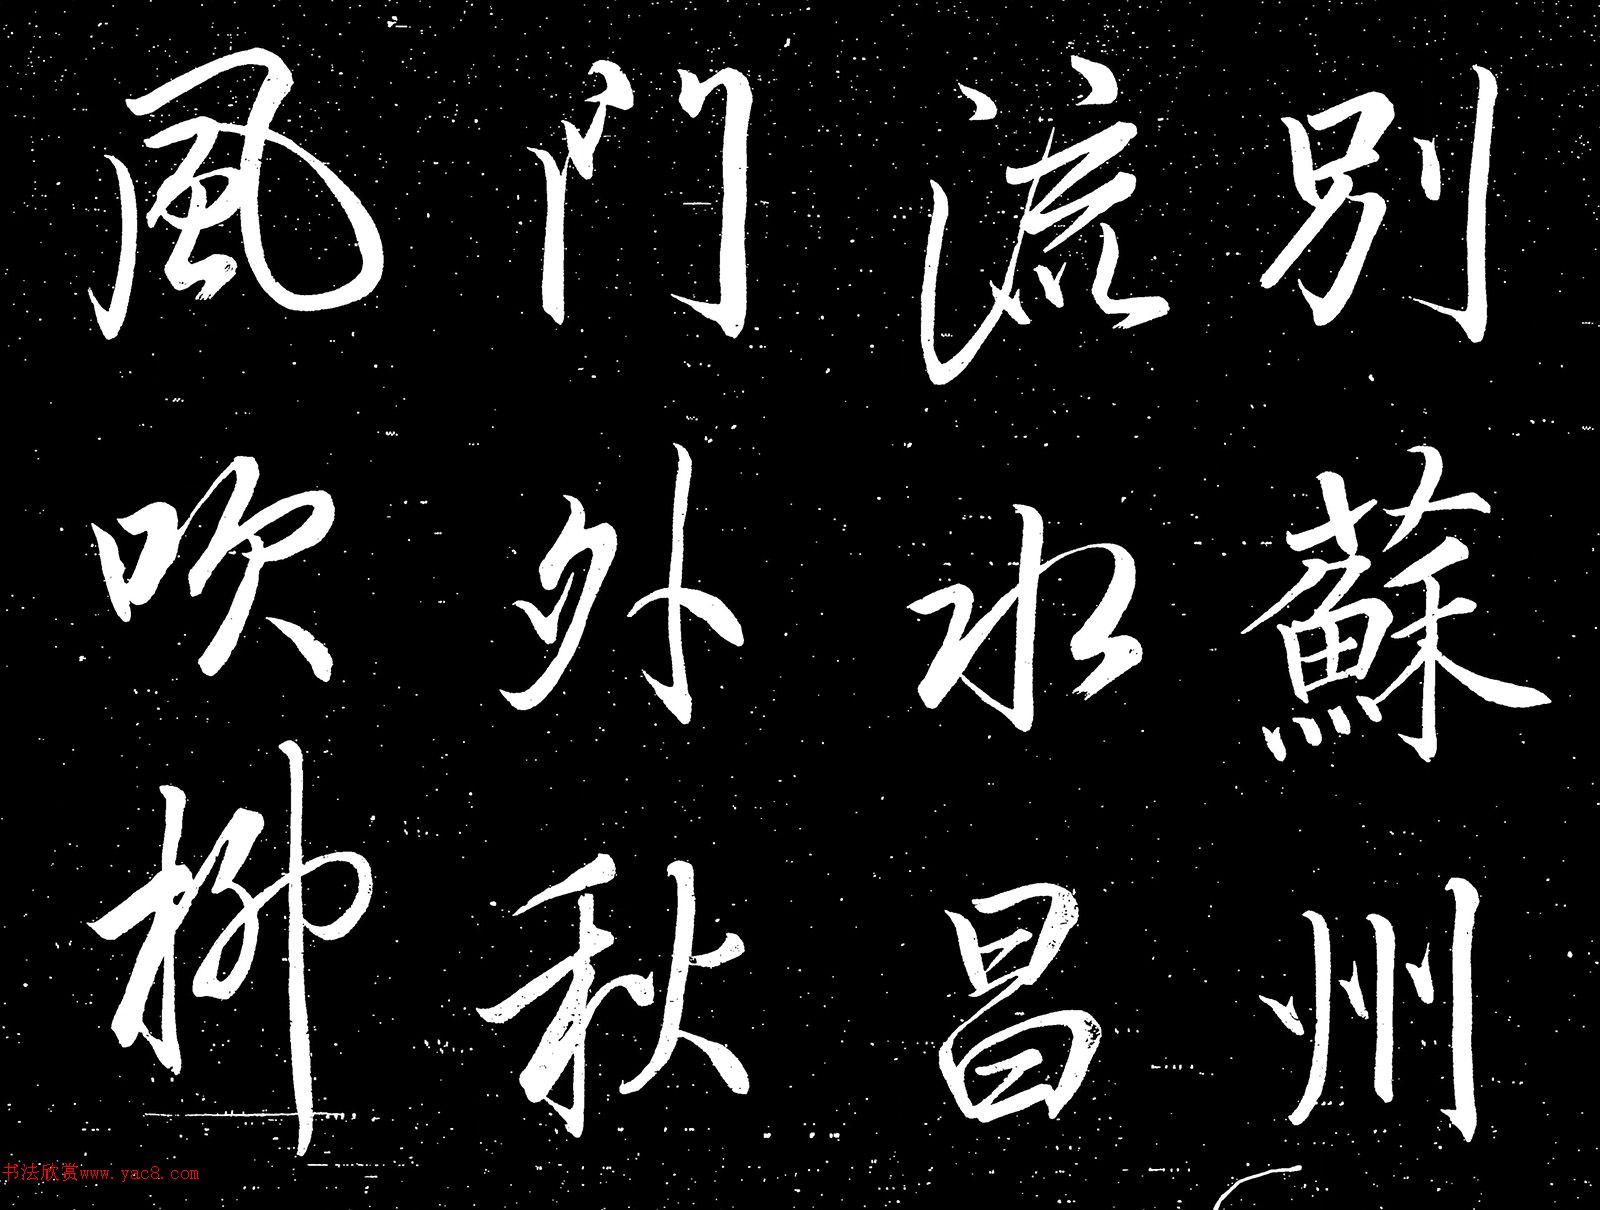 別蘇州
流水昌
門外秋
風吹柳
书法欣赏www.yac8.com